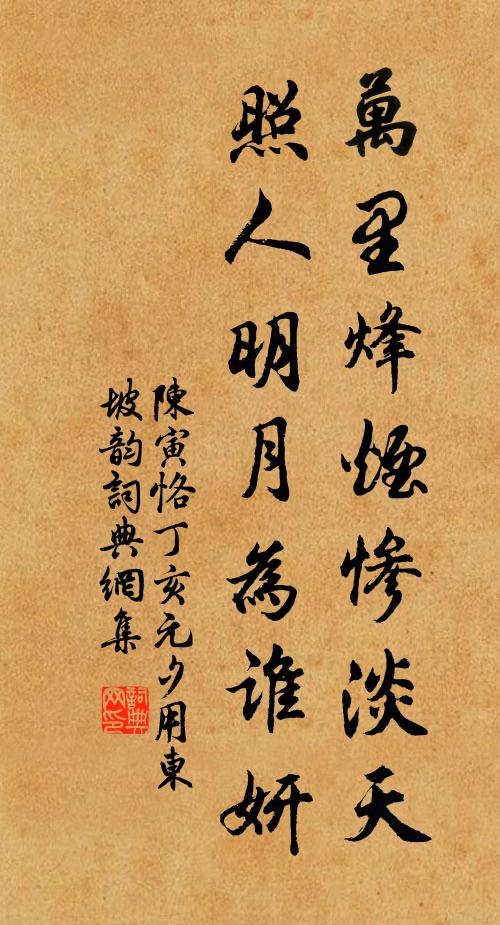 萬里烽煙慘淡天
照人明月為誰妍
陳寅恪丁亥元夕用東
坡韵詞典網集
詞典
网印